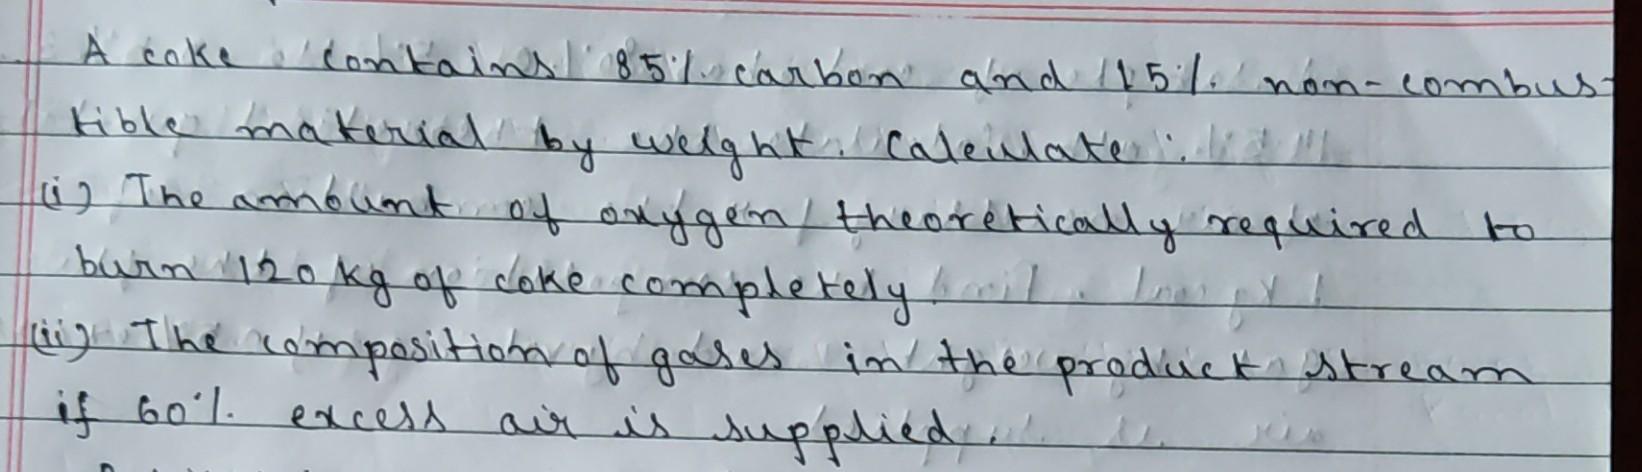 A coke contains 85%. carbon and 15%. non-combus-
tible material by weight. Calculate :
(i) The amount of oxygen theoretically required to
burn 120 kg of coke completely
(ii) The composition of gases in the product stream
if 60%. excess air is supplied.